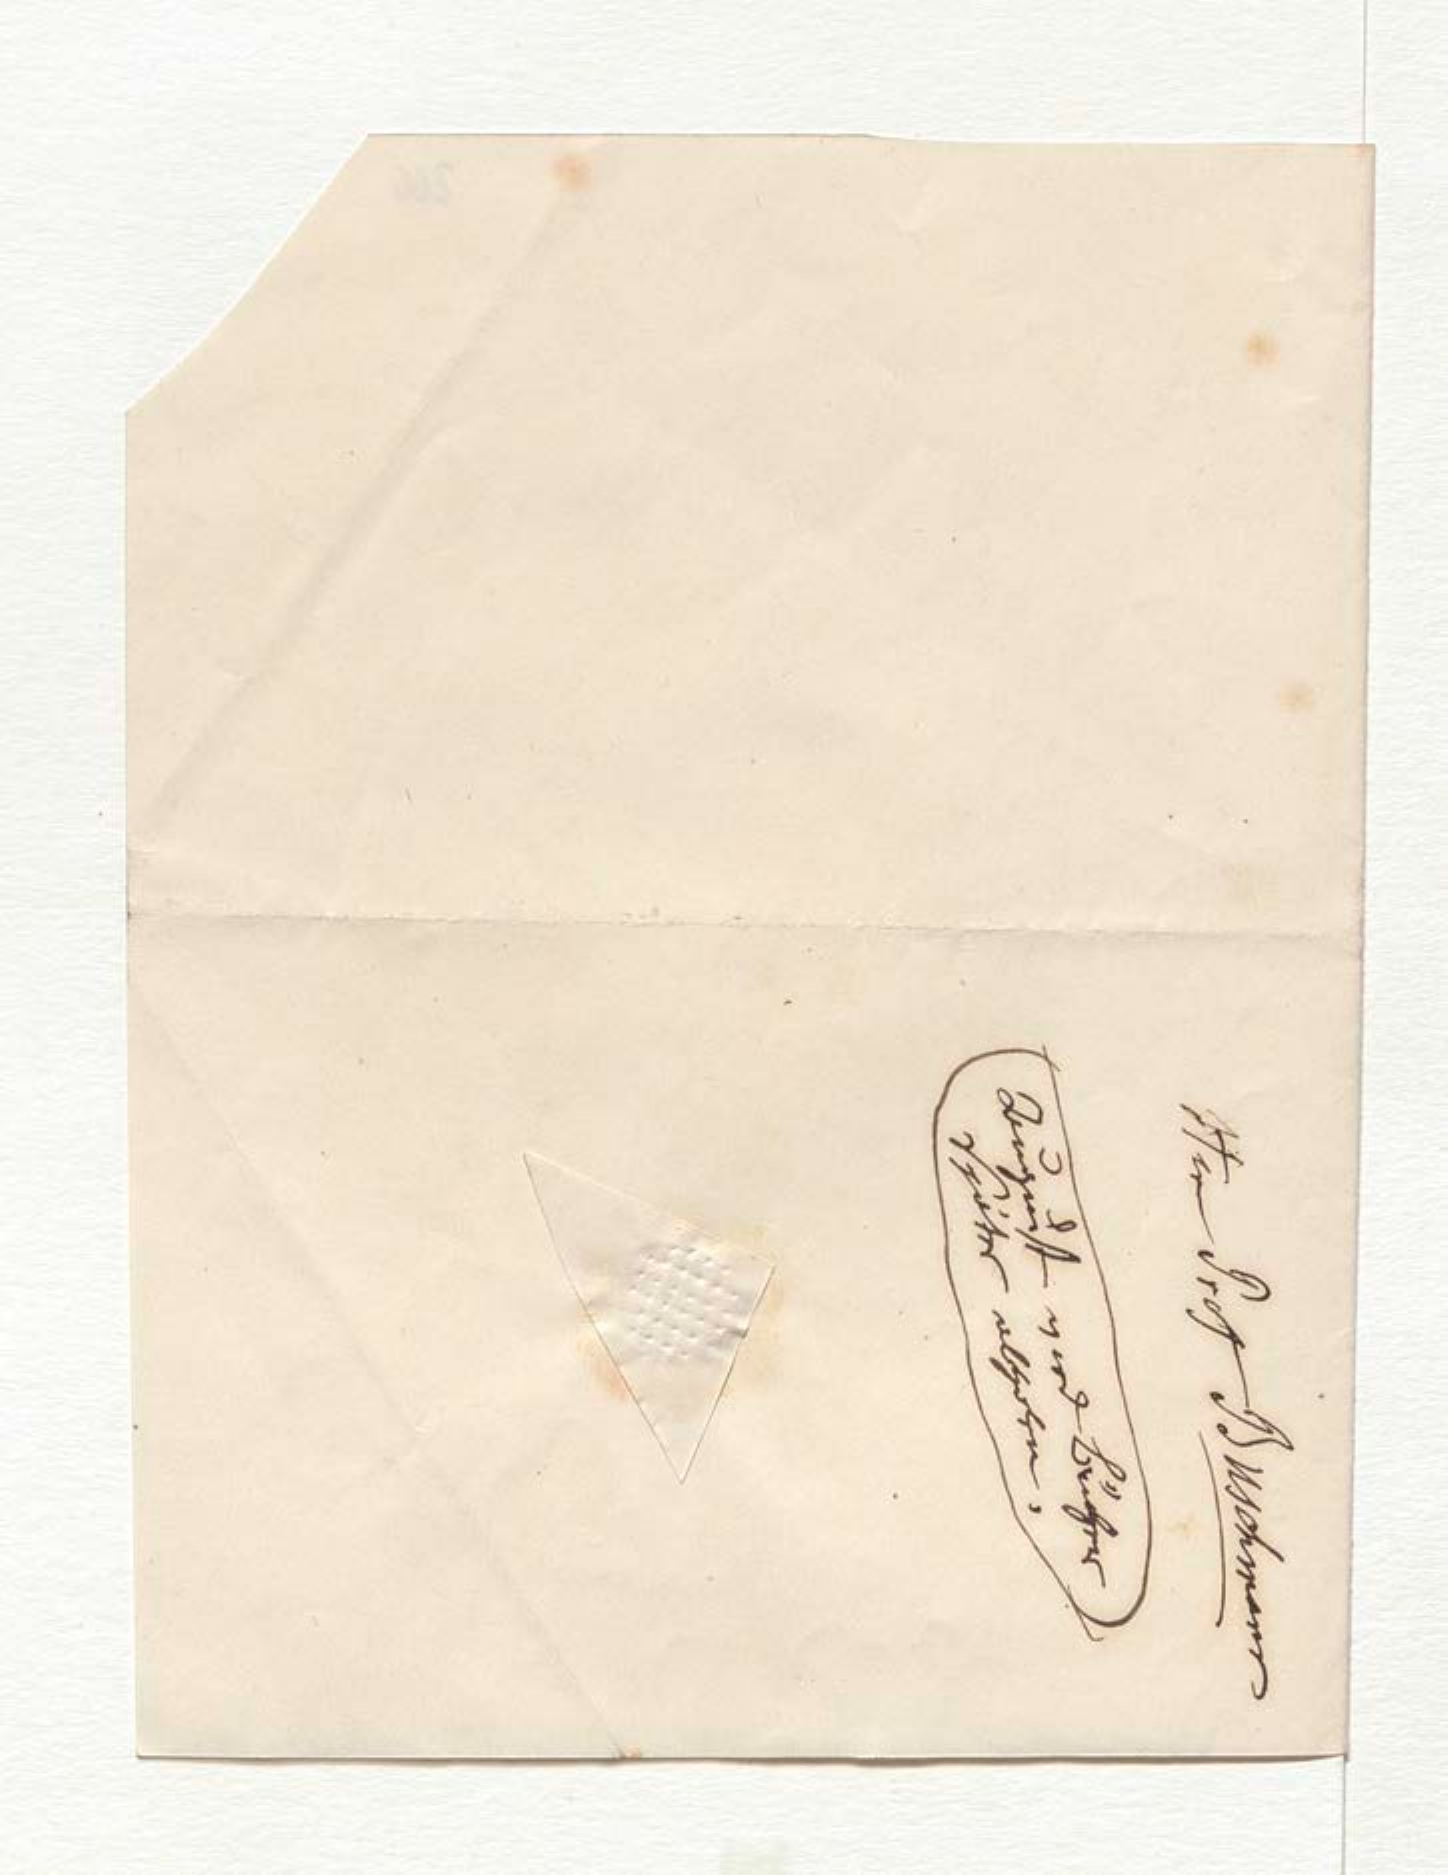 Herrn Prof Buschmann
wird Bücher
später abholen.